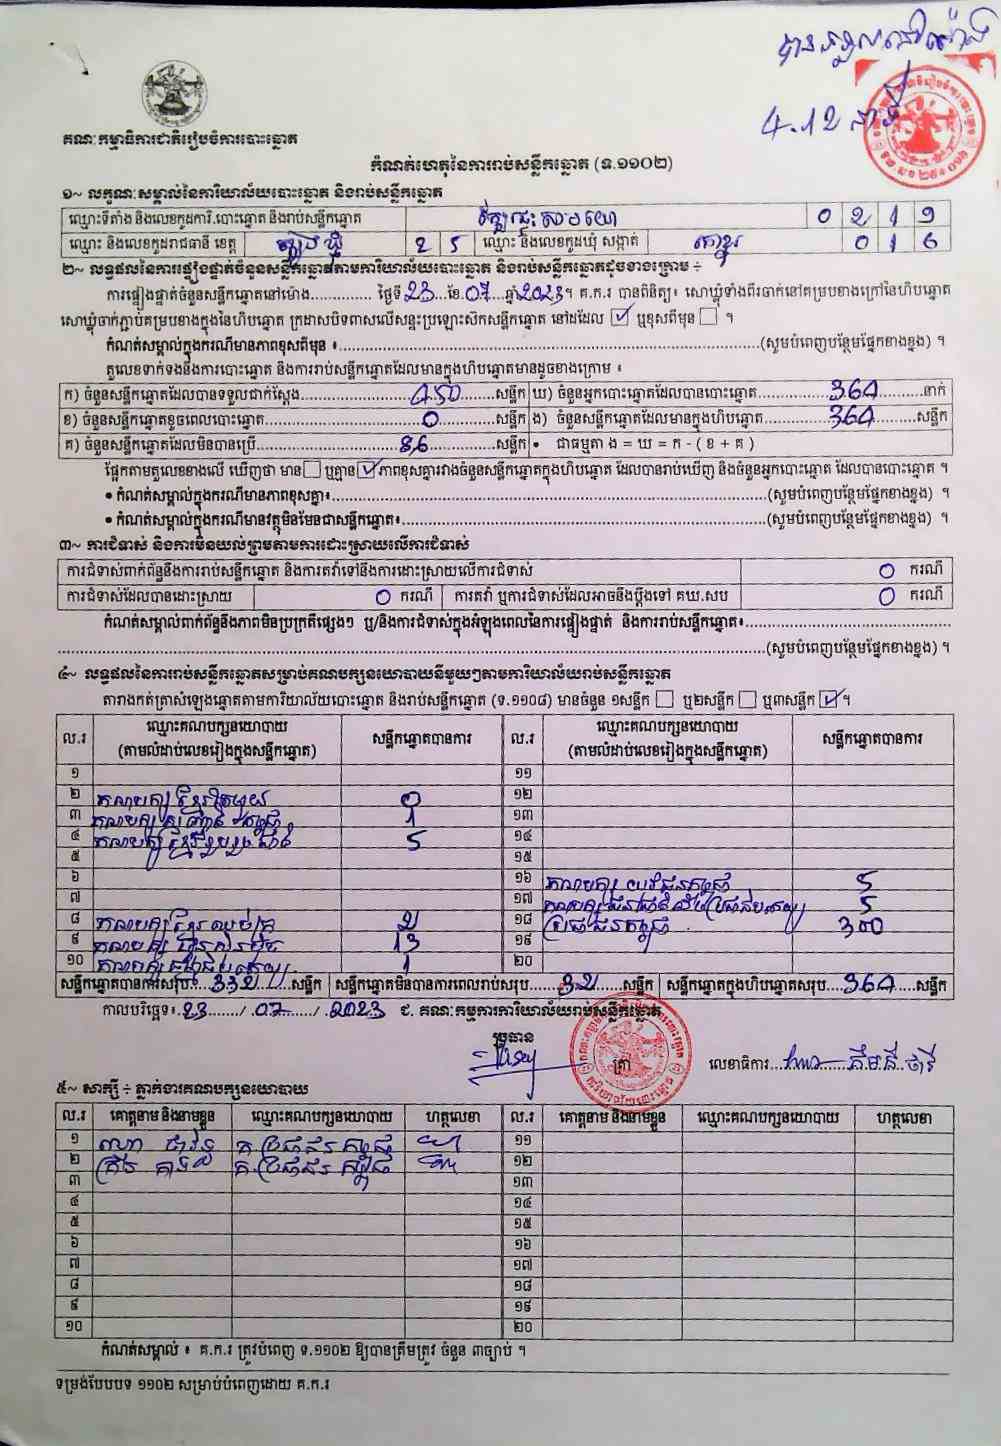 បានទទួលនៅម៉ោង
4.12 នាទី
គណៈកម្មាធិការជាតិរៀបចំការបោះឆ្នោត
កំណត់ហេតុនៃការរាប់សន្លឹកឆ្នោត (ទ.១១០២)
១~ លក្ខណៈសម្គាល់នៃការិយាល័យបោះឆ្នោត និងរាប់សន្លឹកឆ្នោត
ឈ្មោះទីតាំង និងលេខកូដការិ.បោះឆ្នោត និងរាប់សន្លឹកឆ្នោត 0 2 1 9
ឈ្មោះ និងលេខកូដរាជធានី ខេត្ត ត្បូងឃ្មុំ 2 5 ឈ្មោះ និងលេខកូដឃុំ សង្កាត់ 0 1 6
២~ លទ្ធផលនៃការផ្ទៀងផ្ទាត់ចំនួនសន្លឹកឆ្នោតតាមការិយាល័យបោះឆ្នោត និងរាប់សន្លឹកឆ្នោតដូចខាងក្រោម ÷
ការផ្ទៀងផ្ទាត់ចំនួនសន្លឹកឆ្នោតនៅម៉ោង.............. ថ្ងៃទី 23 ខែ 07 ឆ្នាំ 2023 ។ គ.ក.រ បានពិនិត្យ៖ សោឃ្លុំទាំងពីរចាក់នៅគម្របខាងក្រៅនៃហិបឆ្នោត
សោឃ្លុំចាក់ភ្ជាប់គម្របខាងក្នុងនៃហិបឆ្នោត ក្រដាសបិទពាសលើសន្ទះប្រឡោះសឹកសន្លឹកឆ្នោត នៅដដែល ☑ ឬខុសពីមុន ☐ ។
កំណត់សម្គាល់ក្នុងករណីមានភាពខុសពីមុន ៖ (សូមបំពេញបន្ថែមផ្នែកខាងខ្នង) ។
តួលេខទាក់ទងនឹងការបោះឆ្នោត និងការរាប់សន្លឹកឆ្នោតដែលមានក្នុងហិបឆ្នោតមានដូចខាងក្រោម ៖
ក) ចំនួនសន្លឹកឆ្នោតដែលបានទទួលជាក់ស្តែង 450 សន្លឹក ឃ) ចំនួនអ្នកបោះឆ្នោតដែលបានបោះឆ្នោត 364 នាក់
ខ) ចំនួនសន្លឹកឆ្នោតខូចពេលបោះឆ្នោត 0 សន្លឹក ង) ចំនួនសន្លឹកឆ្នោតដែលមានក្នុងហិបឆ្នោត 364 សន្លឹក
គ) ចំនួនសន្លឹកឆ្នោតដែលមិនបានប្រើ 86 សន្លឹក • ជាធម្មតា ង = ឃ = ក - ( ខ + គ )
ផ្អែកតាមតួលេខខាងលើ ឃើញថា មាន ☐ ឬគ្មាន ☑ ភាពខុសគ្នារវាងចំនួនសន្លឹកឆ្នោតក្នុងហិបឆ្នោត ដែលបានរាប់ឃើញ និងចំនួនអ្នកបោះឆ្នោត ដែលបានបោះឆ្នោត ។
• កំណត់សម្គាល់ក្នុងករណីមានភាពខុសគ្នា៖ (សូមបំពេញបន្ថែមផ្នែកខាងខ្នង) ។
• កំណត់សម្គាល់ក្នុងករណីមានវត្ថុមិនមែនជាសន្លឹកឆ្នោត៖ (សូមបំពេញបន្ថែមផ្នែកខាងខ្នង) ។
៣~ ការជំទាស់ និងការមិនយល់ព្រមតាមការដោះស្រាយលើការជំទាស់
ការជំទាស់ពាក់ព័ន្ធនឹងការរាប់សន្លឹកឆ្នោត និងការតវ៉ាទៅនឹងការដោះស្រាយលើការជំទាស់ 0 ករណី
ការជំទាស់ដែលបានដោះស្រាយ 0 ករណី ការតវ៉ា ឬការជំទាស់ដែលអាចនឹងប្តឹងទៅ គឃ.សប 0 ករណី
កំណត់សម្គាល់ពាក់ព័ន្ធនឹងភាពមិនប្រក្រតីផ្សេងៗ ឬ/និងការជំទាស់ក្នុងអំឡុងពេលនៃការផ្ទៀងផ្ទាត់ និងការរាប់សន្លឹកឆ្នោត៖
(សូមបំពេញបន្ថែមផ្នែកខាងខ្នង) ។
៤~ លទ្ធផលនៃការរាប់សន្លឹកឆ្នោតសម្រាប់គណបក្សនយោបាយនីមួយៗតាមការិយាល័យរាប់សន្លឹកឆ្នោត
តារាងកត់ត្រាសំឡេងឆ្នោតតាមការិយាល័យបោះឆ្នោត និងរាប់សន្លឹកឆ្នោត (ទ.១១០៨) មានចំនួន ១សន្លឹក ☐ ឬ២សន្លឹក ☐ ឬ៣សន្លឹក ☑ ។
ល.រ ឈ្មោះគណបក្សនយោបាយ (តាមលំដាប់លេខរៀងក្នុងសន្លឹកឆ្នោត) សន្លឹកឆ្នោតបានការ ល.រ ឈ្មោះគណបក្សនយោបាយ (តាមលំដាប់លេខរៀងក្នុងសន្លឹកឆ្នោត) សន្លឹកឆ្នោតបានការ
១ ១១
២ គណបក្ស ខ្មែររួបរួម 0 ១២
៣ គណបក្ស 1 ១៣
៤ គណបក្ស 5 ១៤
៥ ១៥
៦ ១៦ គណបក្ស យុវជនកម្ពុជា 5
៧ ១៧ គណបក្ស 5
៨ គណបក្ស ខ្មែរ ឈប់ក្រ 2 ១៨ ប្រជាជនកម្ពុជា 300
៩ គណបក្ស 13 ១៩
១០ គណបក្ស 1 ២០
សន្លឹកឆ្នោតបានការសរុប 332 សន្លឹក សន្លឹកឆ្នោតមិនបានការពេលរាប់សរុប 32 សន្លឹក សន្លឹកឆ្នោតក្នុងហិបឆ្នោតសរុប 364 សន្លឹក
កាលបរិច្ឆេទ៖ 23 / 07 / 2023 ជ. គណៈកម្មការការិយាល័យរាប់សន្លឹកឆ្នោត
ប្រធាន
ត្រា
លេខាធិការ
៥~ សាក្សី ÷ ភ្នាក់ងារគណបក្សនយោបាយ
ល.រ គោត្តនាម និងនាមខ្លួន ឈ្មោះគណបក្សនយោបាយ ហត្ថលេខា ល.រ គោត្តនាម និងនាមខ្លួន ឈ្មោះគណបក្សនយោបាយ ហត្ថលេខា
១ គ.ប្រជាជន កម្ពុជា ១១
២ គ.ប្រជាជន កម្ពុជា ១២
៣ ១៣
៤ ១៤
៥ ១៥
៦ ១៦
៧ ១៧
៨ ១៨
៩ ១៩
១០ ២០
កំណត់សម្គាល់ ៖ គ.ក.រ ត្រូវបំពេញ ទ.១១០២ ឱ្យបានត្រឹមត្រូវ ចំនួន ៣ច្បាប់ ។
ទម្រង់បែបបទ ១១០២ សម្រាប់បំពេញដោយ គ.ក.រ